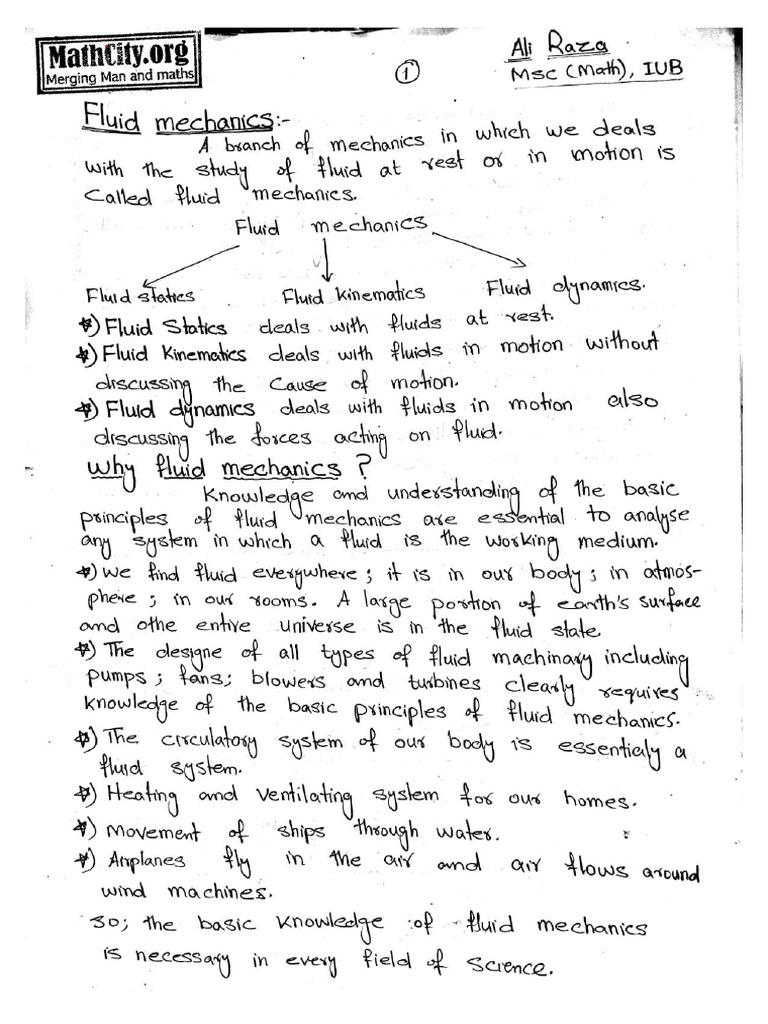 MathCity.org
Merging Man and maths
①
Ali Raza
Msc (Math), IUB
Fluid mechanics:-
A branch of mechanics in which we deals
with the study of fluid at rest or in motion is
Called fluid mechanics.
Fluid mechanics
Fluid statics Fluid Kinematics Fluid dynamics.
*) Fluid Statics deals with fluids at rest.
*) Fluid Kinematics deals with fluids in motion without
discussing the Cause of motion.
*) Fluid dynamics deals with fluids in motion also
discussing the forces acting on fluid.
Why fluid mechanics ?
Knowledge and understanding of the basic
principles of fluid mechanics are essential to analyse
any system in which a fluid is the working medium.
*) We find fluid everywhere; it is in our body; in atmos-
phere; in our rooms. A large portion of earth's surface
and othe entire universe is in the fluid state.
*) The designe of all types of fluid machinary including
pumps; fans; blowers and turbines clearly requires
knowledge of the basic principles of fluid mechanics.
*) The circulatory system of our body is essentialy a
fluid system.
*) Heating and Ventilating system for our homes.
*) Movement of ships through water.
*) Airplanes fly in the air and air flows around
wind machines.
So; the basic knowledge of fluid mechanics
is necessary in every field of science.